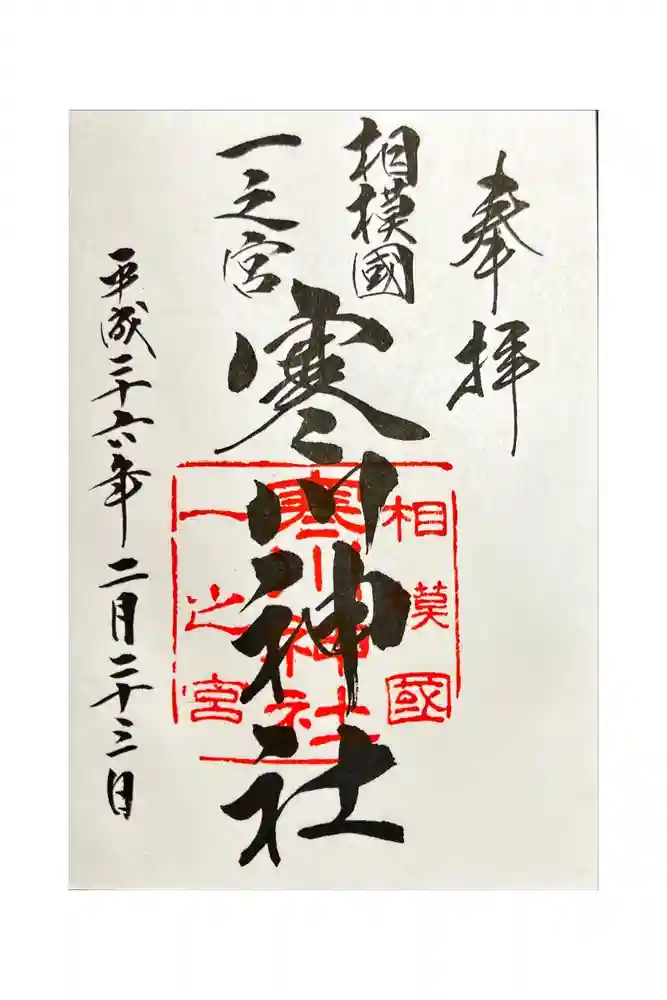 奉拝
相模國
一之宮
寒川神社
平成二十六年二月二十三日
相模國
寒川神社
一之宮